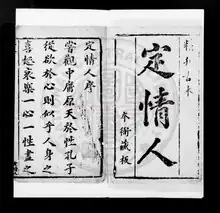 定情人
本衙藏板
定情人序
嘗觀中庸原天於性孔子
從欲於心則似乎人身之
喜怒哀樂一心一性盡之